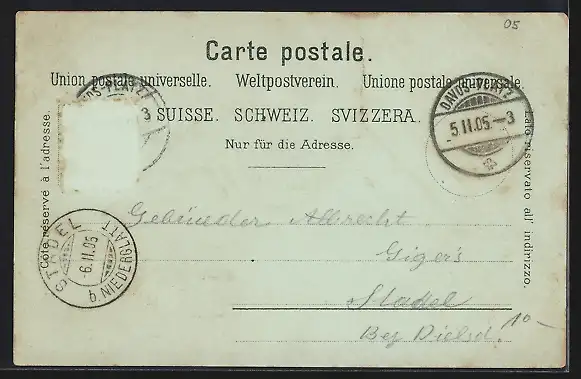 05
Carte postale.
Union postale universelle. Weltpostverein. Unione postale universale.
SUISSE. SCHWEIZ. SVIZZERA.
Nur für die Adresse.
Côté réservé à l'adresse.
Lato riservato all' indirizzo.
DAVOS-PLATZ
3
DAVOS-PLATZ
5.II.05.-3
STADEL
-6.II.05
b. NIEDERGLATT
Gebrüder Albrecht
Giger's
Stadel
Bez Dielsd.
10-